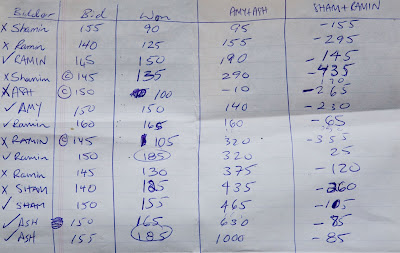 Bidder Bid Won AMY+ASH SHAM+RAMIN
X Shamin 155 90 95 -155
X Ramin 140 125 155 -295
✓ RAMIN 165 150 190 -145
X Shanim © 145 135 290 -435
X ASH © 150 100 -10 -265
✓ AMY 150 150 140 -230
✓ Ramin 160 165 160 -65
X RAMIN © 145 105 320 -355
✓ Ramin 150 185 320 25
X Ramin 145 130 375 -120
X SHAM 140 435 -260
✓ SHAM 150 155 465 -105
✓ ASH 150 165 630 -85
✓ ASH 155 185 1000 -85